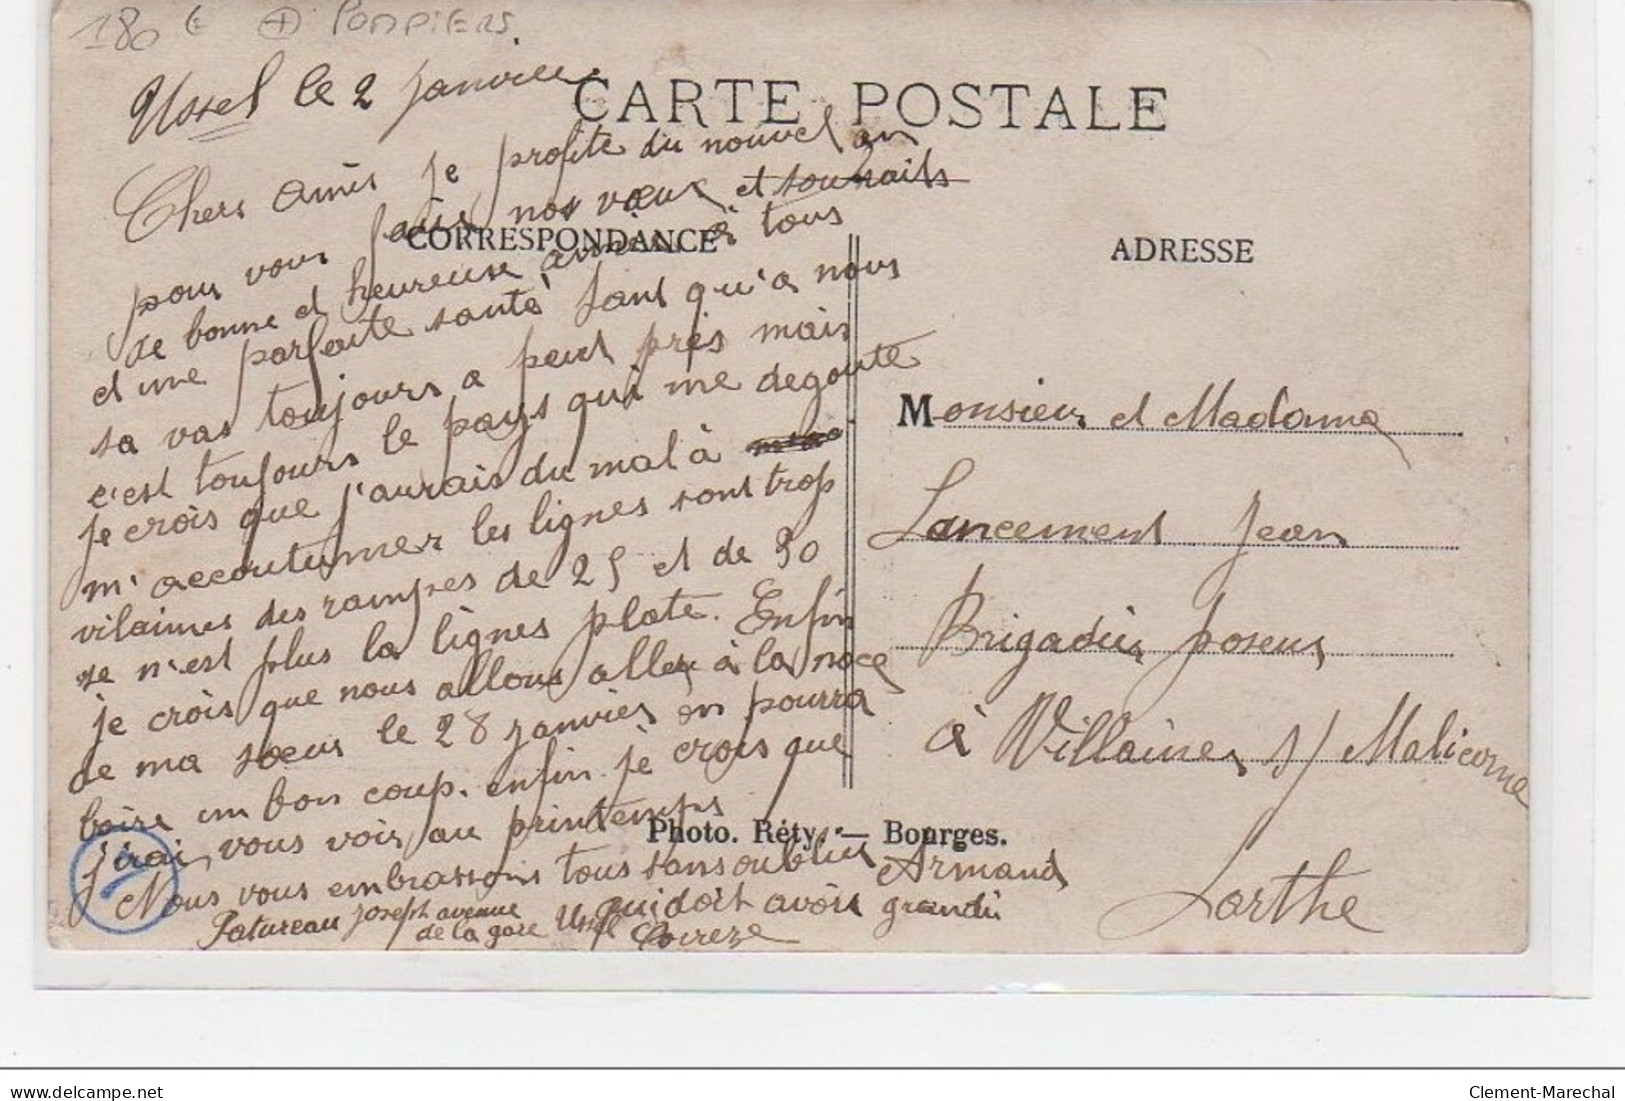 180 € + POMPIERS.
Ussel le 2 janvier
CARTE POSTALE
Chers amis je profite du nouvel an
pour vous faire nos vœux et souhaits
CORRESPONDANCE
ADRESSE
de bonne et heureuse année à tous
et une parfaite santé tant qu'a nous
sa vas toujours a peut près mais
c'est toujours le pays qui me degoute
je crois que j'aurais du mal à
m'accoutumer les lignes sont trop
vilaines des rampes de 25 et de 30
se n'est plus la lignes plate. Enfin
je crois que nous allons aller à la noce
de ma sœur le 28 janvier on pourra
boire un bon coup. enfin je crois que
j'irai vous voir au printemps
Nous vous embrassons tous sans oublier Armand
qui doit avoir grandi
Patureau joseph avenue
de la gare Ussel
Correze
Monsieur et Madame
Lancement Jean
Brigadier poseur
à Villaines s/ Malicorne
Sarthe
Photo. Réty. — Bourges.
www.delcampe.net
Clement-Marechal